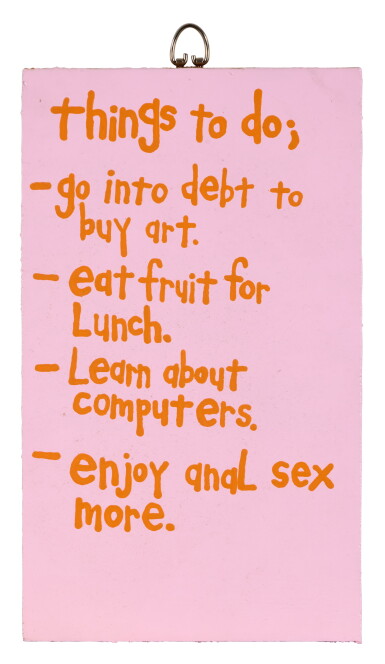 things to do;
- go into debt to
buy art.
- eat fruit for
Lunch.
- Learn about
computers.
- enjoy anal sex
more.